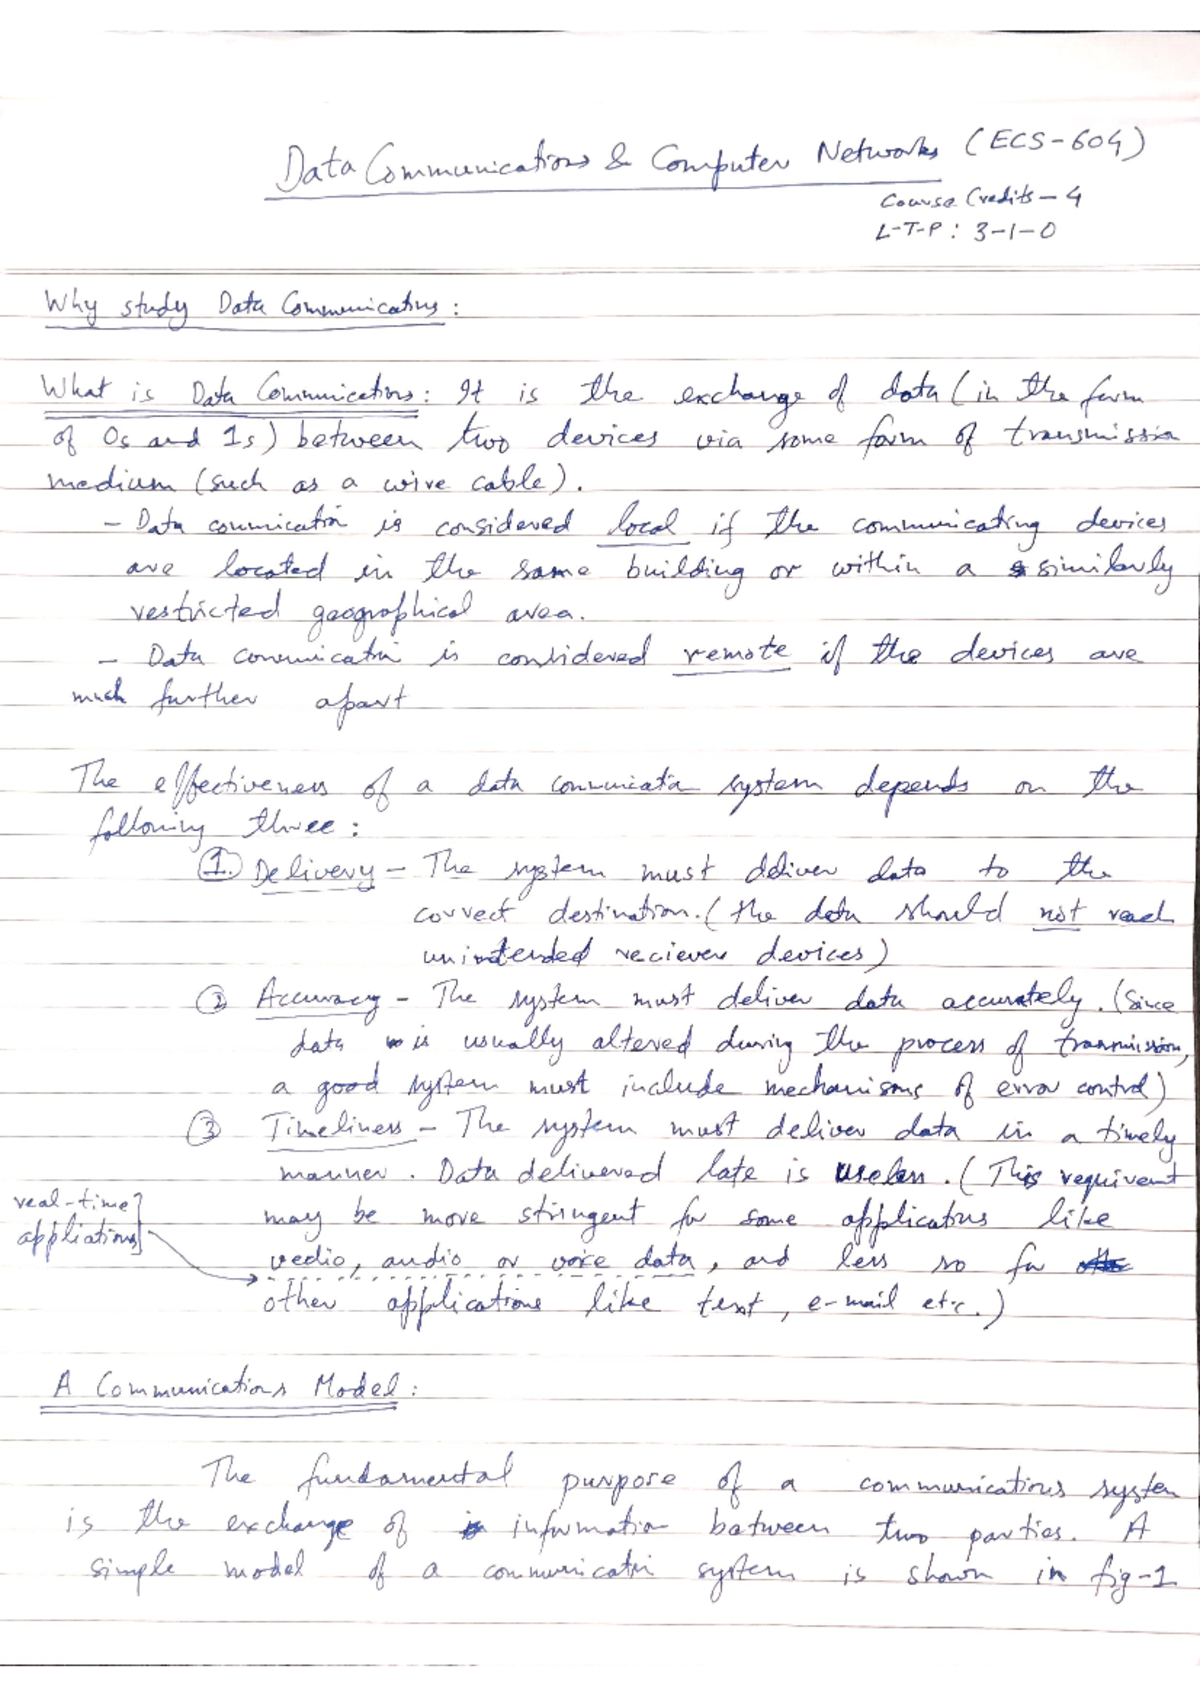 Data Communications & Computer Networks (ECS-604)
Course Credits - 4
L-T-P : 3-1-0
Why study Data Communications :
What is Data Communications : It is the exchange of data (in the form
of 0s and 1s) between two devices via some form of transmission
medium (such as a wire cable).
- Data communication is considered local if the communicating devices
are located in the same building or within a similarly
restricted geographical area.
- Data communication is considered remote if the devices are
much further apart
The effectiveness of a data communication system depends on the
following three :
1. Delivery - The system must deliver data to the
correct destination. (the data should not reach
unintended reciever devices)
2 Accuracy - The system must deliver data accurately. (Since
data is usually altered during the process of transmission,
a good system must include mechanisms of error control)
3 Timeliness - The system must deliver data in a timely
manner. Data delivered late is useless. (This requirement
real-time
may be more stringent for some applications like
appliations
vedio, audio or voice data, and less so for
other applications like text, e-mail etc.)
A Communications Model :
The fundamental purpose of a communications system
is the exchange of information between two parties. A
simple model of a communication system is shown in fig-1